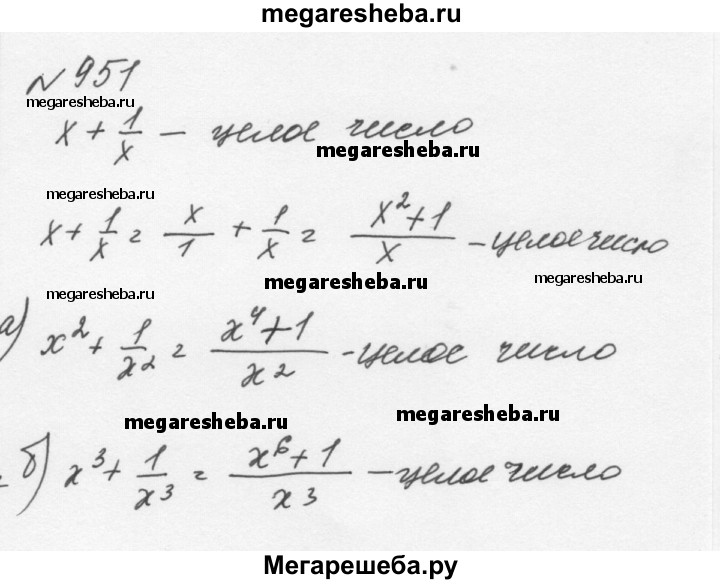 megaresheba.ru
№951
megaresheba.ru
x + 1/x — целое число
megaresheba.ru
megaresheba.ru
x + 1/x = x/1 + 1/x = (x²+1)/x - целое число
megaresheba.ru megaresheba.ru
megaresheba.ru
а) x² + 1/x² = (x⁴+1)/x² - целое число
megaresheba.ru megaresheba.ru
б) x³ + 1/x³ = (x⁶+1)/x³ — целое число
Мегарешеба.ру